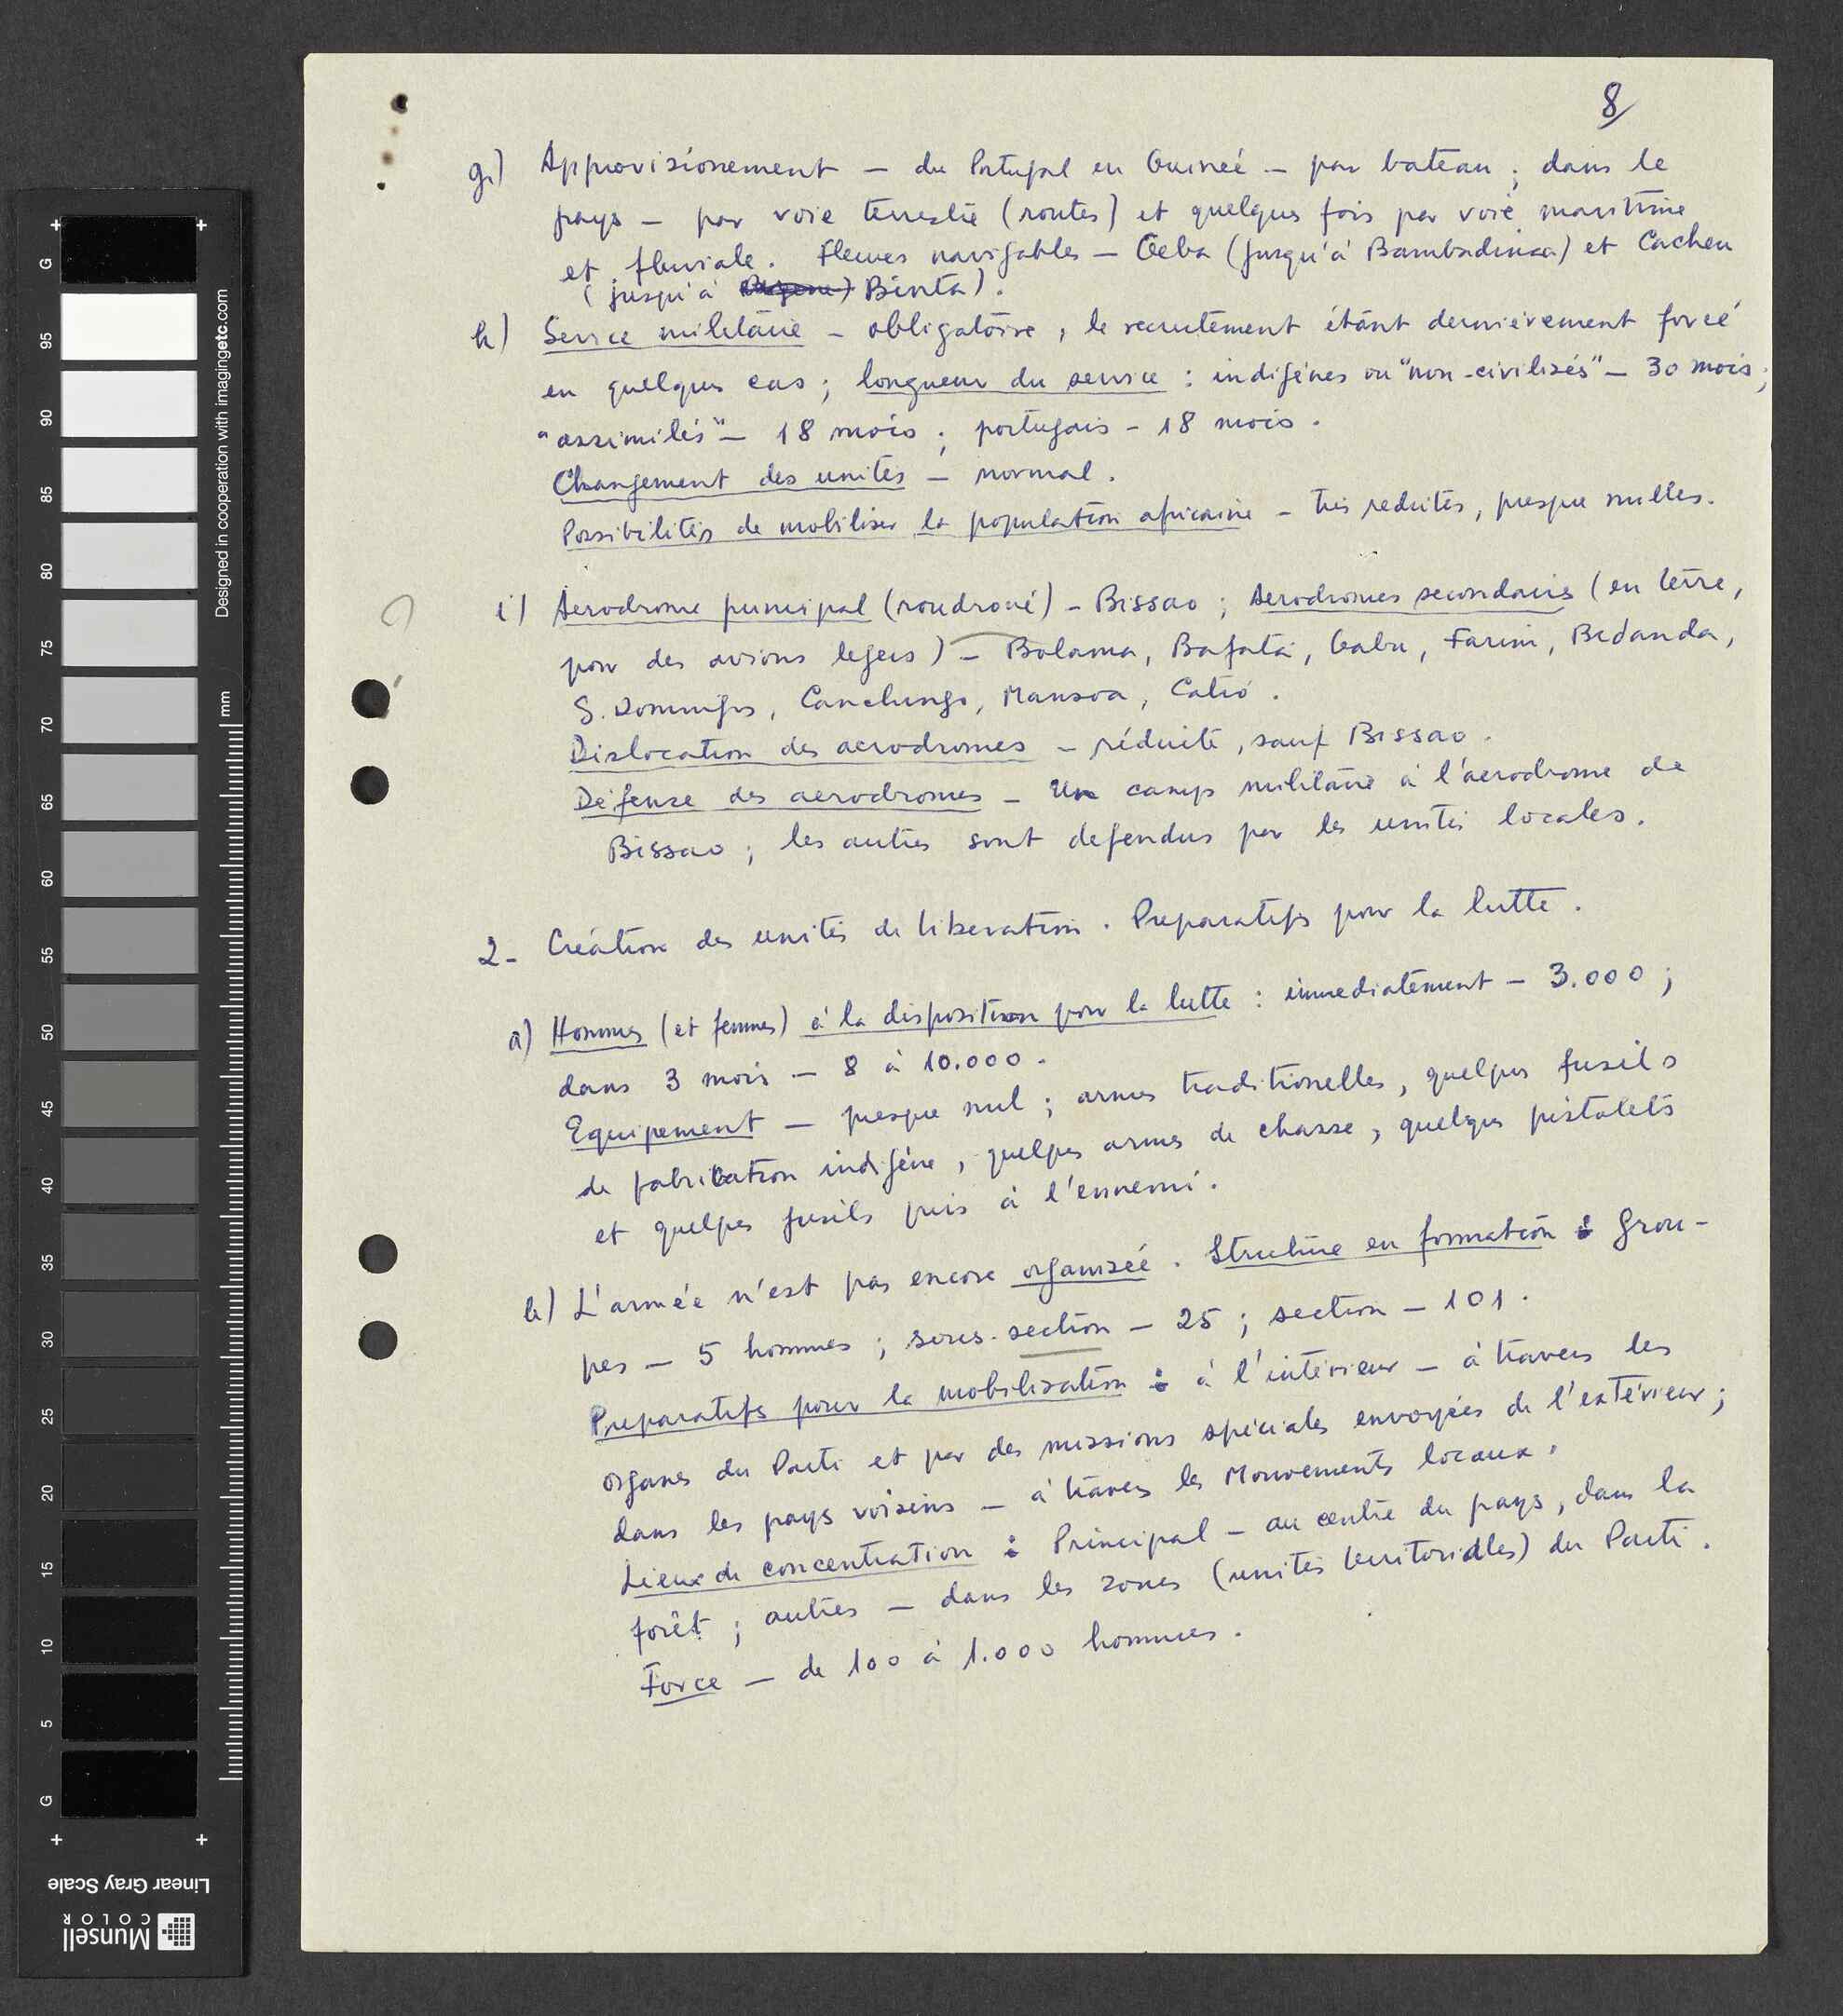 8
g.) Approvisionement – du Portugal en Guineé – par bateau ; dans le
pays – par voie terrestre (routes) et quelques fois par voie maritime
et fluviale. Fleuves navigables – Geba (jusqu'à Bambadinca) et Cacheu
(jusqu'à Binta).
h) Service militaire – obligatoire, le recrutement étant dernièrement forcé
en quelques cas ; longueur du service : indigènes ou "non-civilisés" – 30 mois ;
"assimilés" – 18 mois ; portugais – 18 mois.
Changement des unités – normal.
Possibilités de mobiliser la population africaine – très reduites, presque nulles.
i) Aerodrome principal (roudroné) – Bissao ; Aerodromes secondaires (en terre,
pour des avions legers) – Bolama, Bafatá, Gabu, Farim, Bedanda,
S. Domingos, Canchungo, Mansoa, Catió.
Dislocation des aerodromes – réduite, sauf Bissao.
Défense des aerodromes – Un camp militaire à l'aerodrome de
Bissao ; les autres sont defendus par les unités locales.
2- Création des unités de liberation. Preparatifs pour la lutte.
a) Hommes (et femmes) à la disposition pour la lutte : immediatement – 3.000 ;
dans 3 mois – 8 à 10.000.
Equipement – presque nul ; armes traditionelles, quelques fusils
de fabrication indigène, quelques armes de chasse, quelques pistolets
et quelques fusils pris à l'ennemi.
b) L'armée n'est pas encore organisée. Structure en formation : Grou-
pes – 5 hommes ; sous-section – 25 ; section – 101.
Preparatifs pour la mobilisation : à l'intérieur – à travers les
organes du Parti et par des missions spéciales envoyées de l'extérieur ;
dans les pays voisins – à travers les Mouvements locaux.
Lieux de concentration : Principal – au centre du pays, dans la
forêt ; autres – dans les zones (unités territorialles) du Parti.
Force – de 100 à 1.000 hommes.
Designed in cooperation with imagingetc.com
mm
G 95 90 85 80 75 70 65 60 55 50 45 40 35 30 25 20 15 10 5 G
Linear Gray Scale
Munsell
COLOR